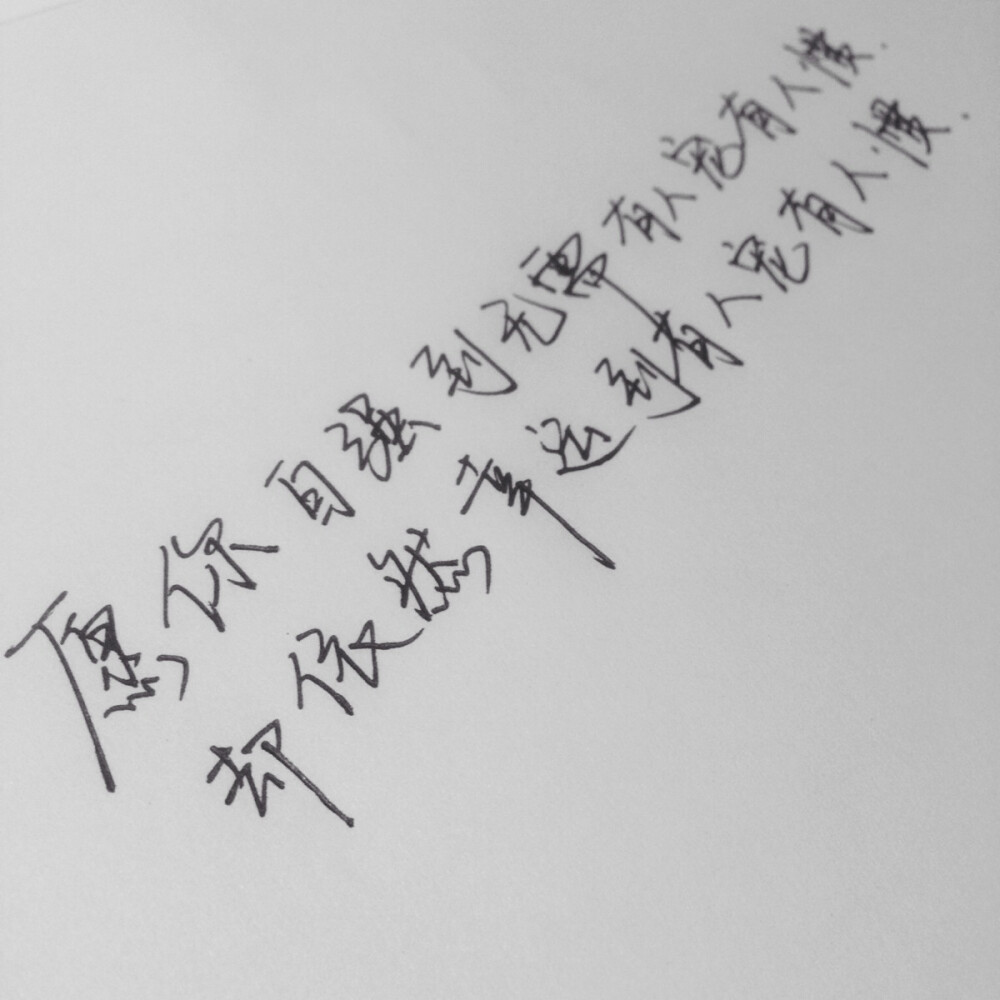 愿你自强到无需有人宠有人懂.
却依然幸运到有人宠有人懂.